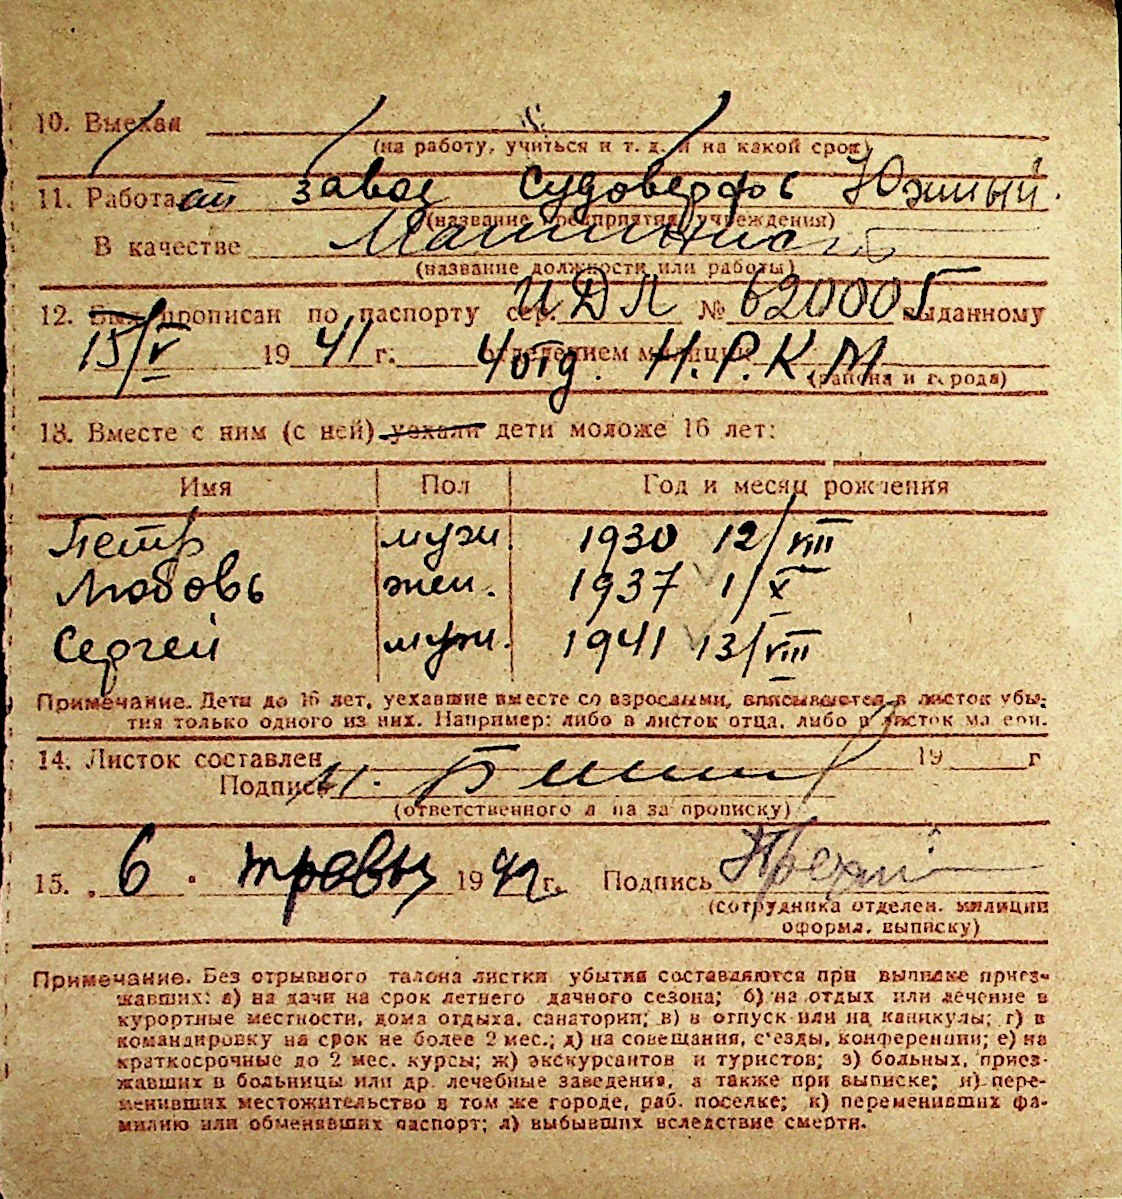 10. Выехал
(на работу, учиться и т. д. и на какой срок)
11. Работает завод Судоверфь Южный.
(название предприятия, учреждения)
В качестве Машинист
(название должности или работы)
12. Был прописан по паспорту сер. ИДЛ № 620005 выданному
15/V 1941 г. 4 отд. отделением милиции Н.Р.К.М.
(района и города)
13. Вместе с ним (с ней) уехали дети моложе 16 лет:
Имя Пол Год и месяц рождения
Петр муж. 1930 12/VIII
Любовь жен. 1937 1/X
Сергей муж. 1941 13/VIII
Примечание. Дети до 16 лет, уехавшие вместе со взрослыми, вписываются в листок убы-
тия только одного из них. Например: либо в листок отца, либо в листок матери.
14. Листок составлен 19 г
Подпись
(ответственного лица за прописку)
15. „6“ травы 1942 г. Подпись
(сотрудника отделен. милиции
оформ. выписку)
Примечание. Без отрывного талона листки убытия составляются при выписке приез-
жавших: а) на дачи на срок летнего дачного сезона; б) на отдых или лечение в
курортные местности, дома отдыха, санатории; в) в отпуск или на каникулы; г) в
командировку на срок не более 2 мес.; д) на совещания, с'езды, конференции; е) на
краткосрочные до 2 мес. курсы; ж) экскурсантов и туристов; з) больных, приез-
жавших в больницы или др. лечебные заведения, а также при выписке; и) пере-
менивших местожительство в том же городе, раб. поселке; к) переменивших фа-
милию или обменявших паспорт; л) выбывших вследствие смерти.